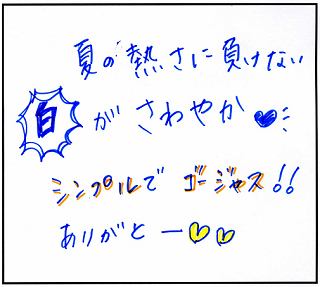 夏の熱さに負けない
白がさわやか♥
シンプルでゴージャス!!
ありがとー♡♡